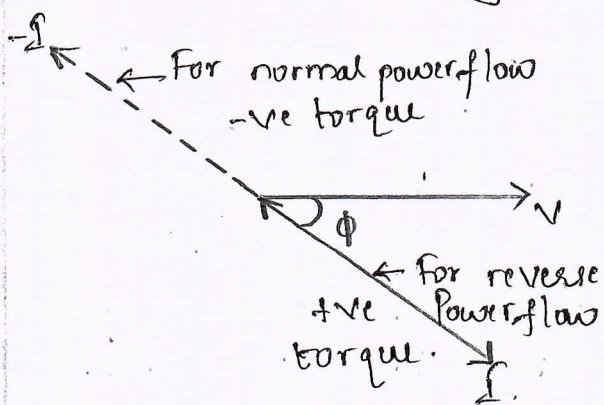 -I
For normal powerflow
-ve torque
V
ϕ
For reverse
+ve Powerflow
torque.
I.